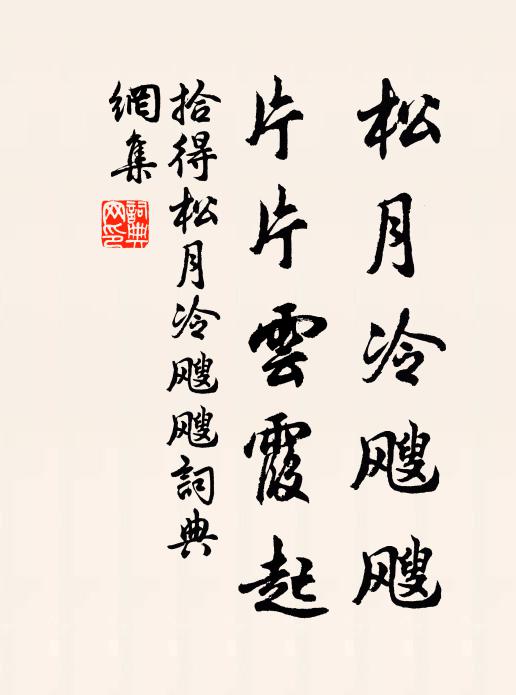 松月冷颼颼
片片雲霞起
拾得松月冷颼颼詞典
網集
詞典
网印